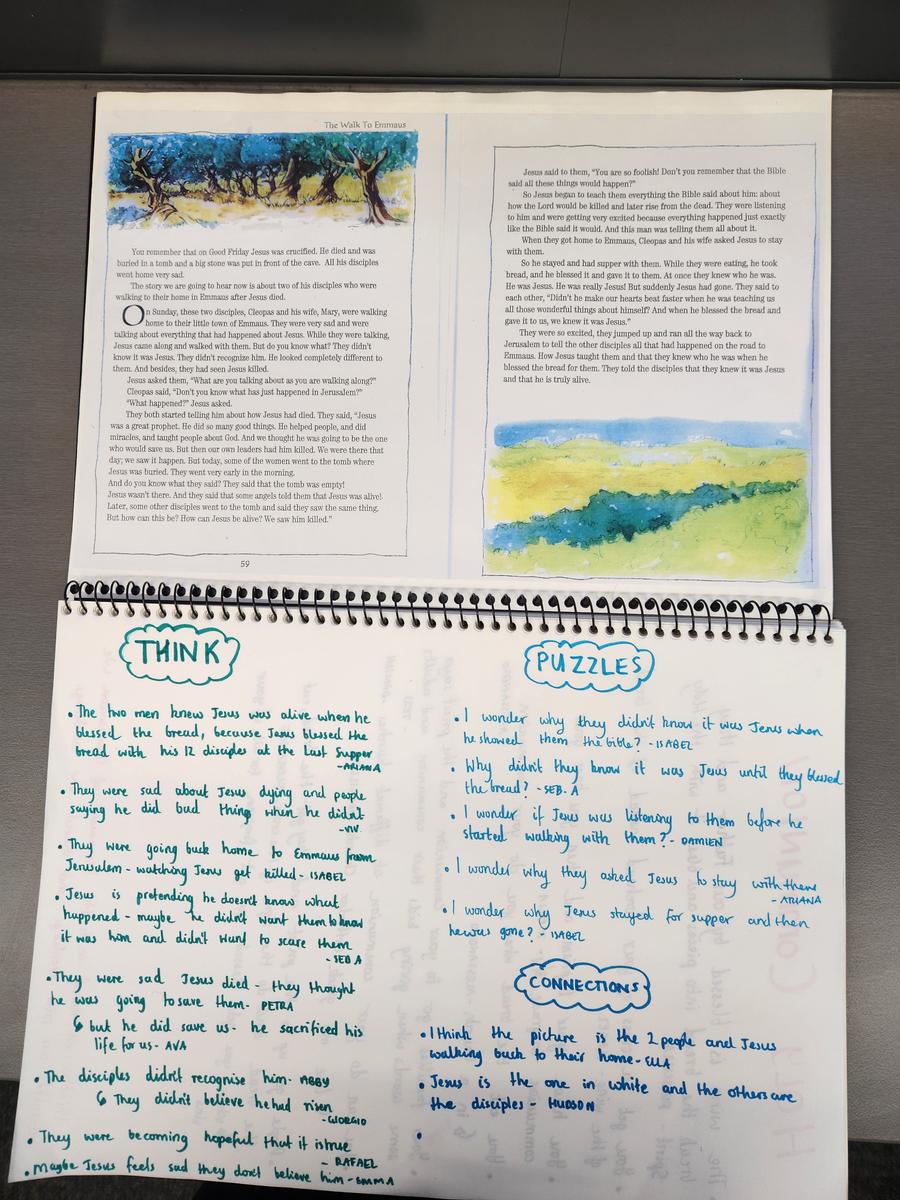 The Walk To Emmaus
You remember that on Good Friday Jesus was crucified. He died and was
buried in a tomb and a big stone was put in front of the cave. All his disciples
went home very sad.
The story we are going to hear now is about two of his disciples who were
walking to their home in Emmaus after Jesus died.
On Sunday, these two disciples, Cleopas and his wife, Mary, were walking
home to their little town of Emmaus. They were very sad and were
talking about everything that had happened about Jesus. While they were talking,
Jesus came along and walked with them. But do you know what? They didn't
know it was Jesus. They didn't recognize him. He looked completely different to
them. And besides, they had seen Jesus killed.
Jesus asked them, "What are you talking about as you are walking along?"
Cleopas said, "Don't you know what has just happened in Jerusalem?"
"What happened?" Jesus asked.
They both started telling him about how Jesus had died. They said, "Jesus
was a great prophet. He did so many good things. He helped people, and did
miracles, and taught people about God. And we thought he was going to be the one
who would save us. But then our own leaders had him killed. We were there that
day; we saw it happen. But today, some of the women went to the tomb where
Jesus was buried. They went very early in the morning.
And do you know what they said? They said that the tomb was empty!
Jesus wasn't there. And they said that some angels told them that Jesus was alive!
Later, some other disciples went to the tomb and said they saw the same thing.
But how can this be? How can Jesus be alive? We saw him killed."
59
Jesus said to them, "You are so foolish! Don't you remember that the Bible
said all these things would happen?"
So Jesus began to teach them everything the Bible said about him: about
how the Lord would be killed and later rise from the dead. They were listening
to him and were getting very excited because everything happened just exactly
like the Bible said it would. And this man was telling them all about it.
When they got home to Emmaus, Cleopas and his wife asked Jesus to stay
with them.
So he stayed and had supper with them. While they were eating, he took
bread, and he blessed it and gave it to them. At once they knew who he was.
He was Jesus. He was really Jesus! But suddenly Jesus had gone. They said to
each other, "Didn't he make our hearts beat faster when he was teaching us
all those wonderful things about himself? And when he blessed the bread and
gave it to us, we knew it was Jesus."
They were so excited, they jumped up and ran all the way back to
Jerusalem to tell the other disciples all that had happened on the road to
Emmaus. How Jesus taught them and that they knew who he was when he
blessed the bread for them. They told the disciples that they knew it was Jesus
and that he is truly alive.
THINK
• The two men knew Jesus was alive when he
blessed the bread, because Jesus blessed the
bread with his 12 disciples at the Last Supper
- ARIANA
• They were sad about Jesus dying and people
saying he did bad things when he didn't
- VIV
• They were going back home to Emmaus from
Jerusalem - watching Jesus get killed - ISABEL
• Jesus is pretending he doesn't know what
happened - maybe he didn't want them to know
it was him and didn't want to scare them
- SEB A
• They were sad Jesus died - they thought
he was going to save them - PETRA
but he did save us - he sacrificed his
life for us - AVA
• The disciples didn't recognise him - ABBY
They didn't believe he had risen
- GIORGIO
• They were becoming hopeful that it is true
- RAFAEL
• maybe Jesus feels sad they don't believe him - EMMA
PUZZLES
• I wonder why they didn't know it was Jesus when
he showed them the bible? - ISABEL
• Why didn't they know it was Jesus until they blessed
the bread? - SEB. A
• I wonder if Jesus was listening to them before he
started walking with them? - DAMIEN
• I wonder why they asked Jesus to stay with them
- ARIANA
• I wonder why Jesus stayed for supper and then
he was gone? - ISABEL
CONNECTIONS
• I think the picture is the 2 people and Jesus
walking back to their home - ELLA
• Jesus is the one in white and the others are
the disciples - HUDSON